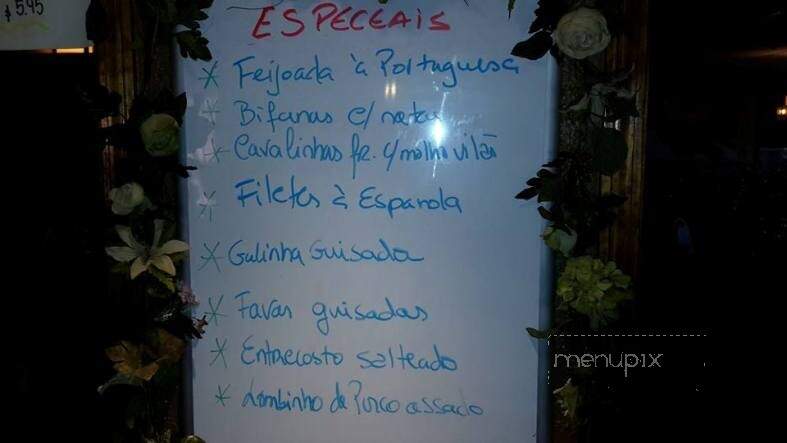 $5.45
ESPECEAIS
* Feijoada à Portuguesa
* Bifanas c/ natas
* Cavalinhas fr. c/molho vilão
* Filetes à Espanola
* Galinha Guisada
* Favas guisadas
* Entrecosto salteado
* Lombinho de Porco assado
menupix